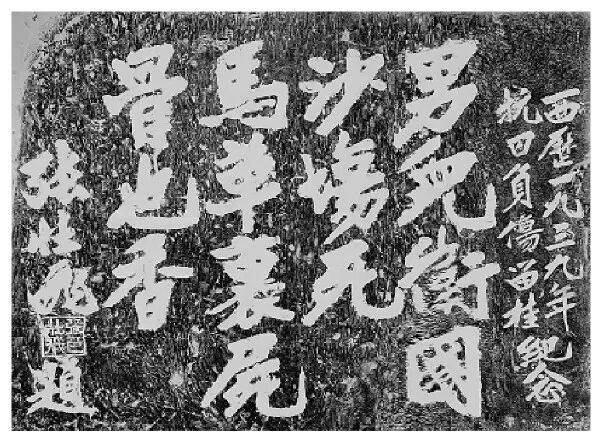 西歷一九三九年
抗日負傷留桂紀念
男兒衛國
沙場死
馬革裹屍
骨也香
張壯飛題